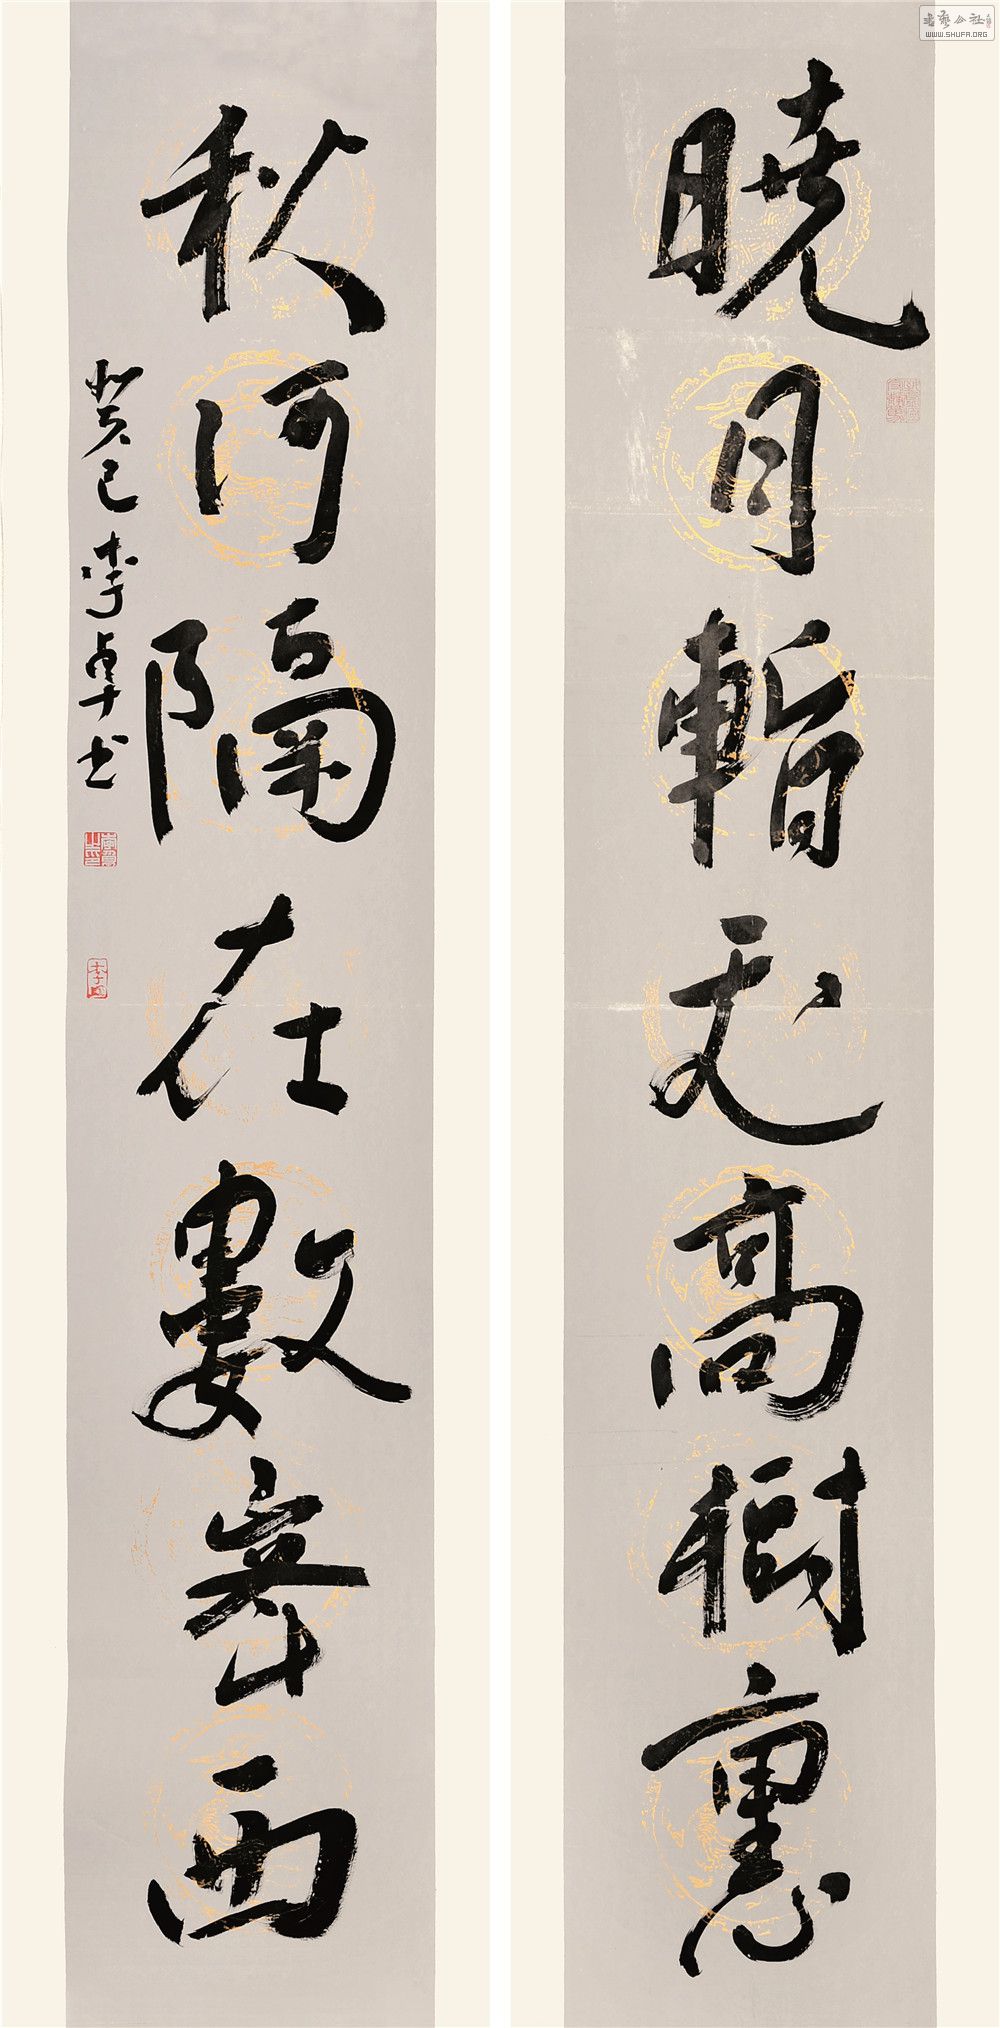 曉月暫飛高樹裏
秋河隔在數峯西
癸巳李卓书
书艺公社
WWW.SHUFA.ORG